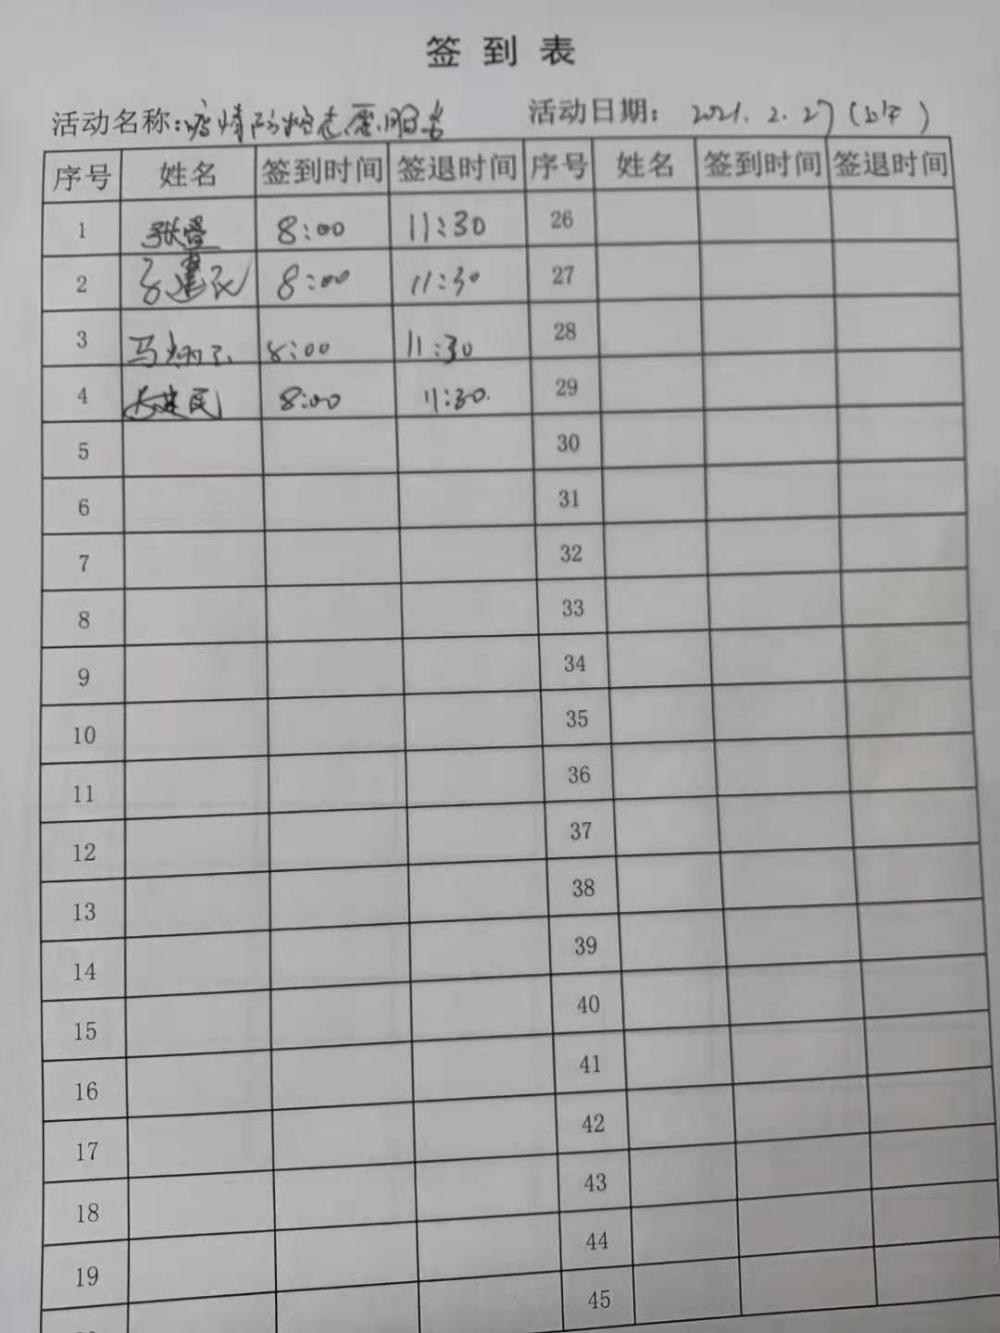 签到表
活动名称：疫情防控志愿服务 活动日期： 2021.2.27（上午）
序号 姓名 签到时间 签退时间 序号 姓名 签到时间 签退时间
1 8:00 11:30 26
2 8:00 11:30 27
3 马 8:00 11:30 28
4 建民 8:00 11:30. 29
5 30
6 31
7 32
8 33
9 34
10 35
11 36
12 37
13 38
14 39
15 40
16 41
17 42
18 43
19 44
45